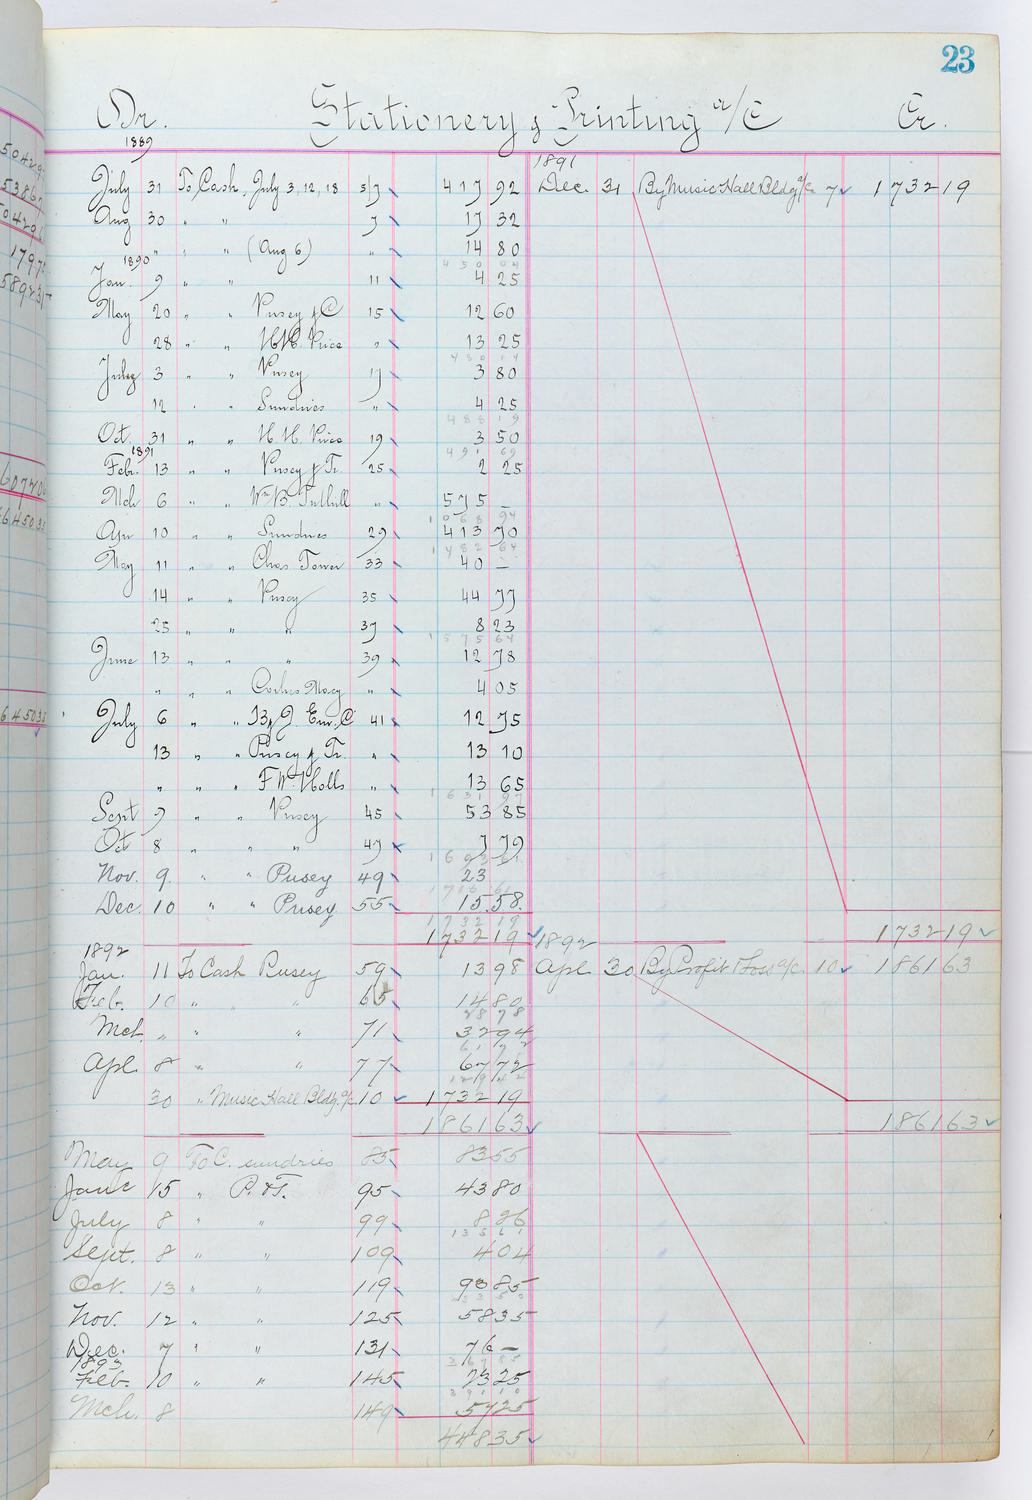 23
Dr. Stationery & Printing a/c Cr.
1889
July 31 To Cash, July 3, 12, 18 5/7 417 92
Aug 30 " " 7 17 32
" " " (Aug 6) " 14 80
450 04
1890
Jan. 9 " " 11 4 25
May 20 " " Pusey & Co 15 12 60
28 " " H.H. Price " 13 25
480 14
July 3 " " Pusey 17 3 80
12 " " Sundries " 4 25
488 19
Oct. 31 " " H. H. Price 19 3 50
491 69
1891
Feb. 13 " " Pusey & Tr. 25 2 25
Mch 6 " " Wm B. Tuthill " 575 –
1068 94
Apr 10 " " Sundries 29 413 70
1482 64
May 11 " " Chas. Tower 33 40 –
14 " " Pusey 35 44 77
25 " " " 37 8 23
1575 64
June 13 " " " 39 12 78
" " " " 4 05
July 6 " " B. & J. Env. Co 41 12 75
13 " " Pusey & Tr. " 13 10
" " " F W. Holls " 13 65
1631 97
Sept 9 " " Pusey 45 53 85
Oct 8 " " " 47 7 79
1693 61
Nov. 9. " " Pusey 49 23
1716 61
Dec. 10 " " Pusey 55 15.58.
1732 19
1732 19
1891
Dec. 31 By Music Hall Bldg a/c 7 1732 19
1732 19
1892
Jan. 11 To Cash Pusey 59 13 98
Feb. 10 " " 65 14 80
28 78
Mch. " " " 71 32 94
61 72
Apl. 8 " " 77 67 72
129 42
30 " Music Hall Bldg. a/c 10 1732 19
1861 63
1892
Apl 30 By Profit & Loss a/c. 10 1861 63
1861 63
May 9 To C. sundries 85 83 55
June 15 " P. & T. 95 43 80
July 8 " " 99 8 26
135 61
Sept. 8 " " 109 4 04
Oct. 13 " " 119 93 85
Nov. 12 " " 125 58 35
Dec. 7 " " 131 76 –
367 85
1893
Feb. 10 " " 145 23 25
391 10
Mch. 8 149 57 25
448 35